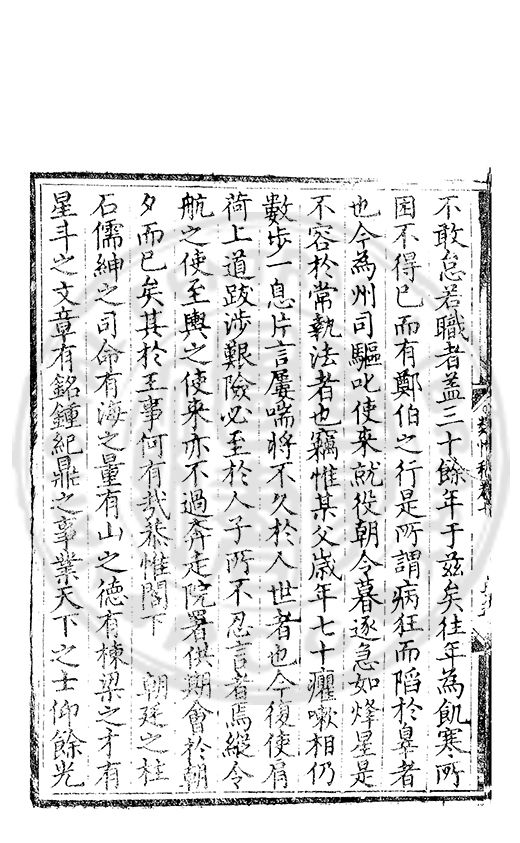 不敢怠若職者葢三十餘年于茲矣徃年為飢寒所
困不得已而有鄭伯之行是所謂病狂而䧟於辠者
也今為州司驅叱使来就役朝令暮逐急如烽星是
不容於常執法者也竊惟某父歲年七十癯嗽相仍
數步一息片言屢喘將不久於人世者也今復使肩
荷上道跋涉艱險必至於人子所不忍言者焉縱令
航之使至輿之使来亦不過奔走院署供期會於朝
夕而已矣其於王事何有㦲恭惟閣下　朝廷之柱
石儒紳之司命有海之量有山之德有棟梁之才有
星斗之文章有銘鍾紀鼎之事業天下之士仰餘光